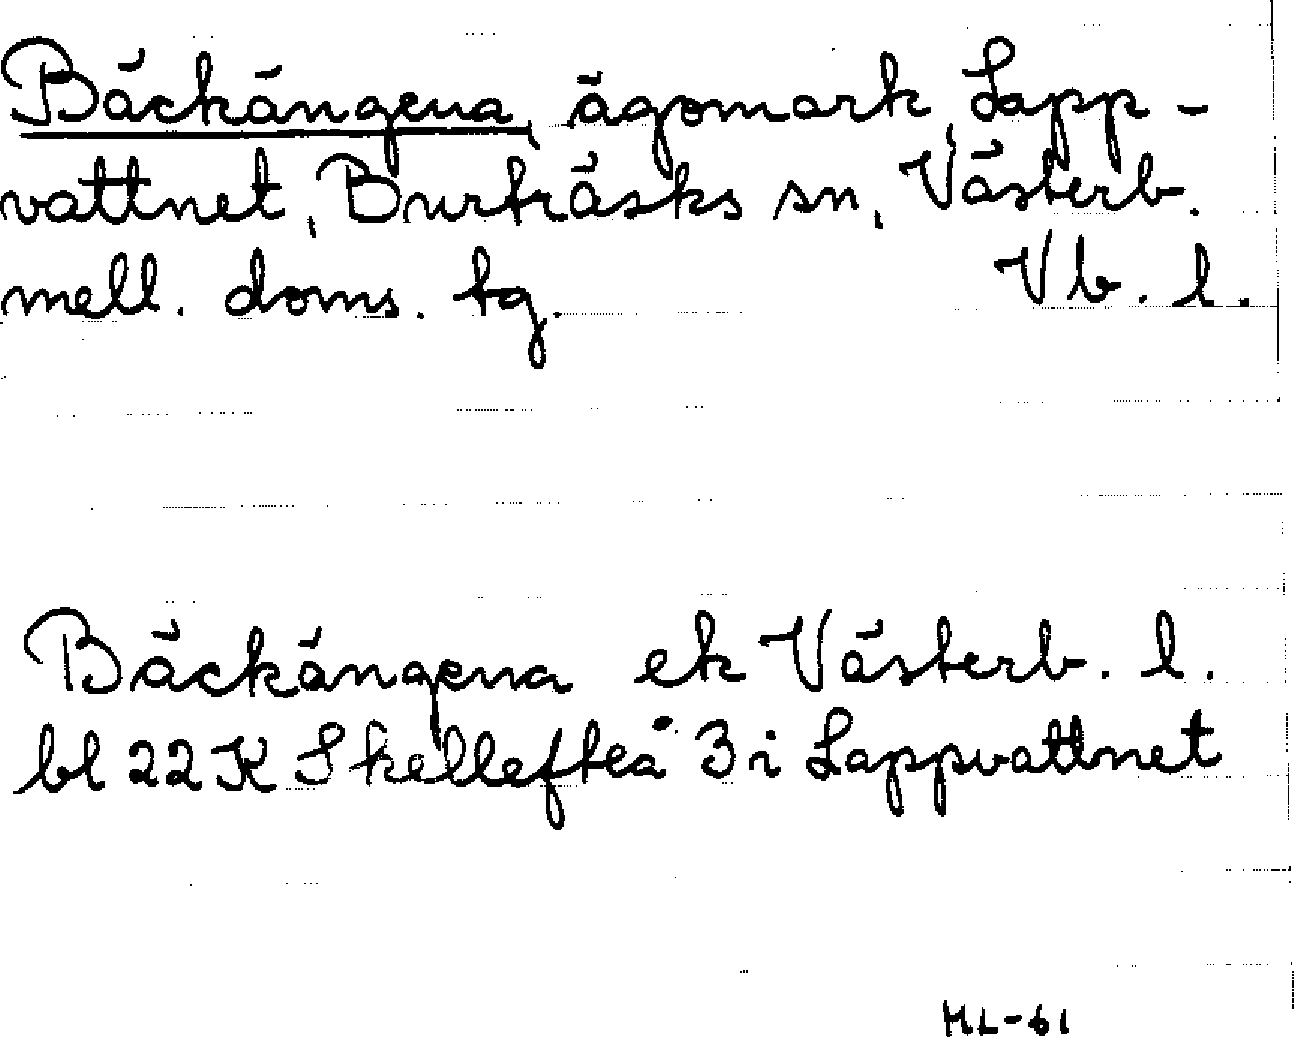 Bäckängena, ägomark, Lapp-
vattnet, Burträsks sn, Västerb.
mell. doms. tg. Vb. l.
Bäckängena ek Västerb. l.
bl 22 K Skellefteå 3 i Lappvattnet
ML-61